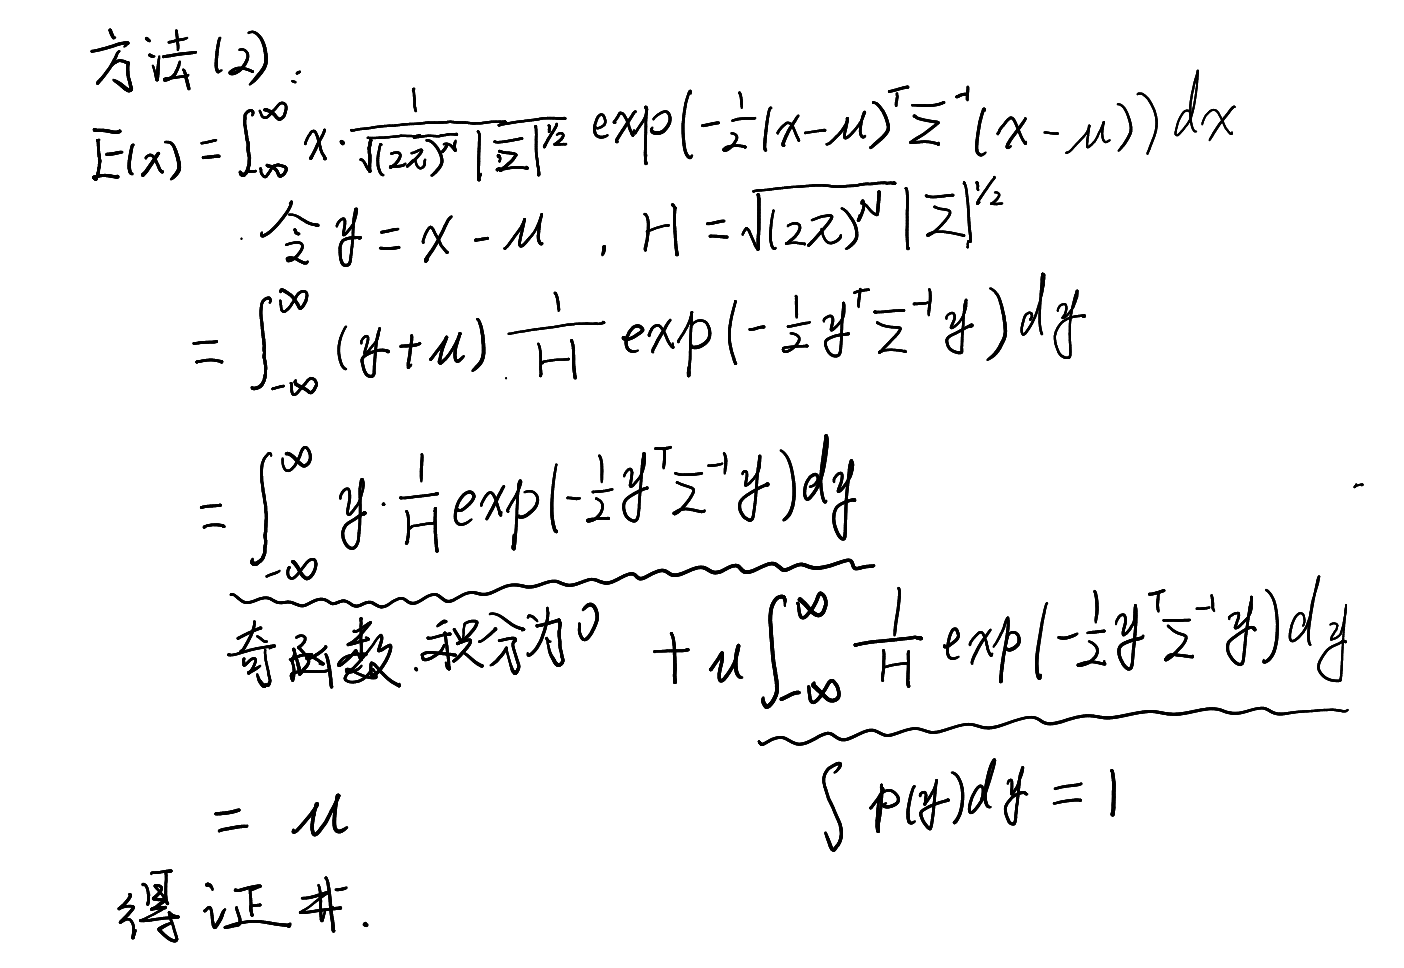 方法(2):
E(x) = ∫_{-∞}^{∞} x · 1/(√((2π)^N) |Σ|^{1/2}) exp(-1/2 (x-μ)^T Σ^{-1} (x-μ)) dx
令 y = x - μ , H = √((2π)^N) |Σ|^{1/2}
= ∫_{-∞}^{∞} (y+μ) 1/H exp(-1/2 y^T Σ^{-1} y) dy
= ∫_{-∞}^{∞} y · 1/H exp(-1/2 y^T Σ^{-1} y) dy
奇函数.积分为0
+ μ ∫_{-∞}^{∞} 1/H exp(-1/2 y^T Σ^{-1} y) dy
∫ p(y)dy = 1
= μ
得证 #.